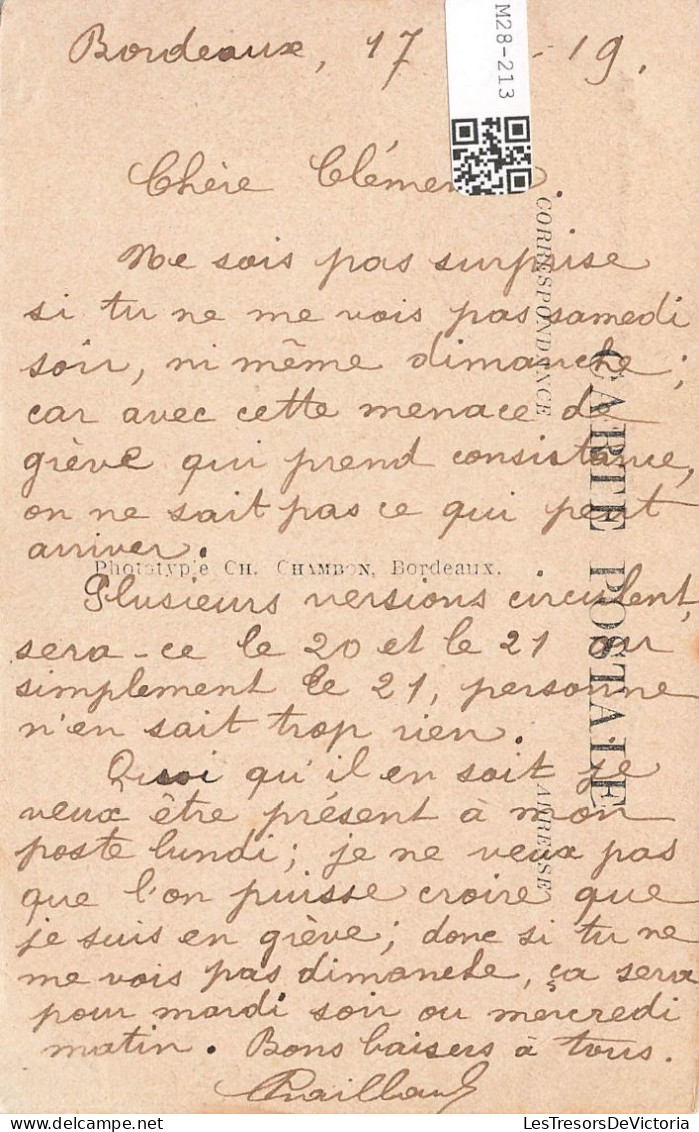 M28-213
Bordeaux, 17 - 19.
Chère
CORRESPONDANCE
Ne sois pas surprise
si tu ne me vois pas samedi
soir, ni même dimanche ;
car avec cette menace de
grève qui prend consistance,
on ne sait pas ce qui peut
arriver.
CARTE POSTALE
Phototypie CH. CHAMBON, Bordeaux.
Plusieurs versions circulent,
sera-ce le 20 et le 21 ou
simplement le 21, personne
n'en sait trop rien.
Quoi qu'il en soit je
veux être présent à mon
ADRESSE
poste lundi ; je ne veux pas
que l'on puisse croire que
je suis en grève ; donc si tu ne
me vois pas dimanche, ça sera
pour mardi soir ou mercredi
matin. Bons baisers à tous.
LesTresorsDeVictoria